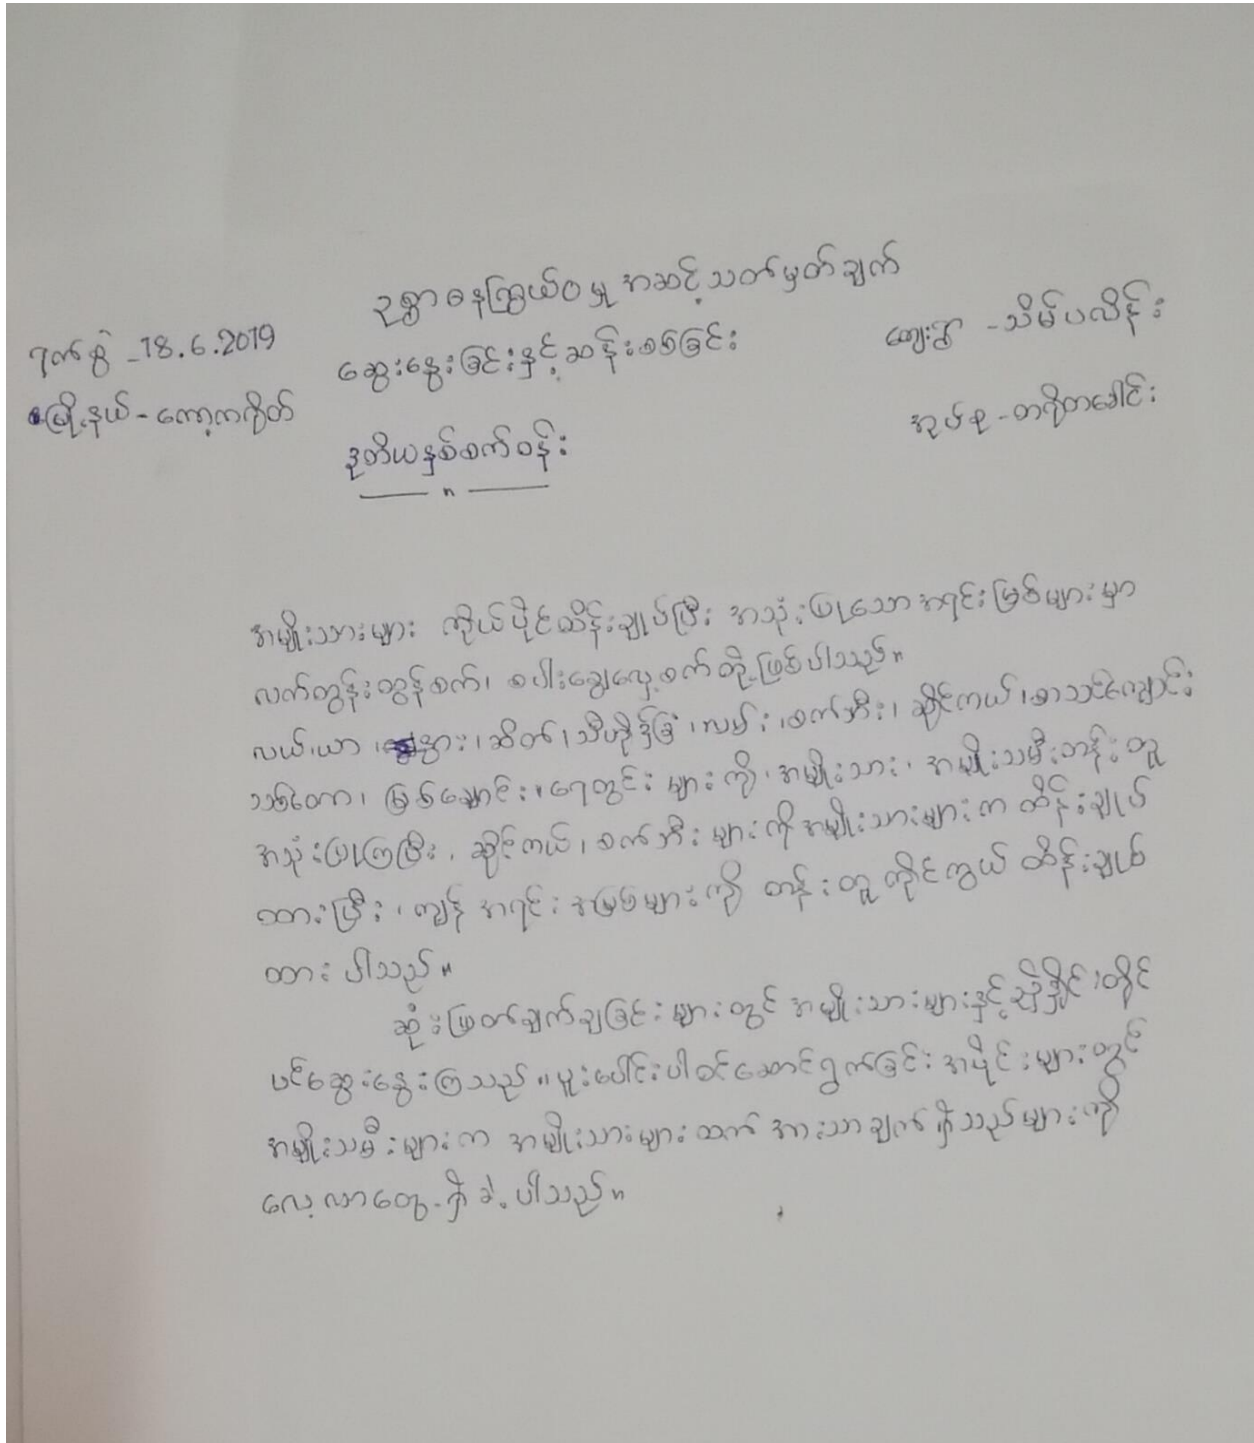 ဥစ္စာဓနကြွယ်ဝမှုအဆင့်သတ်မှတ်ချက်
ရက်စွဲ - 18.6.2019 ဆွေးနွေးခြင်းနှင့်ဆန်းစစ်ခြင်း ကျေးရွာ - သိမ်ပလိန်း
မြို့နယ် - ကော့ကရိတ် အုပ်စု - တရိတခေါင်း
ဒုတိယနှစ်စက်ဝန်း
အမျိုးသားများ ကိုယ်ပိုင်ထိန်းချုပ်ပြီး အသုံးပြုသောအရင်းမြစ်များမှာ
လက်တွန်းထွန်စက်၊ စပါးချွေလှေ့စက်တို့ဖြစ်ပါသည်။
လယ်၊ယာ ၊နွား၊ဆိတ်၊သီဟိုဠ်ခြံ၊လမ်း၊စက်ဘီး၊ ဆိုင်ကယ်၊စာသင်ကျောင်း
သစ်တော၊ မြစ်ချောင်း၊ရေတွင်း များကို၊အမျိုးသား၊ အမျိုးသမီးတန်းတူ
အသုံးပြုကြပြီး၊ ဆိုင်ကယ်၊စက်ဘီး များကိုအမျိုးသားများက ထိန်းချုပ်
ထားပြီး၊ကျန် အရင်းအမြစ်များကို တန်းတူ ကိုင်တွယ် ထိန်းချုပ်
ထား ပါသည်။
ဆုံးဖြတ်ချက်ချခြင်းများတွင် အမျိုးသားများနှင့်ညှိနှိုင်းတိုင်
ပင်ဆွေးနွေးကြသည်။ပူးပေါင်းပါဝင်ဆောင်ရွက်ခြင်းအပိုင်းများတွင်
အမျိုးသမီးများက အမျိုးသားများထက် အားသာချက်ရှိသည်များကို
လေ့လာတွေ့ရှိခဲ့ပါသည်။